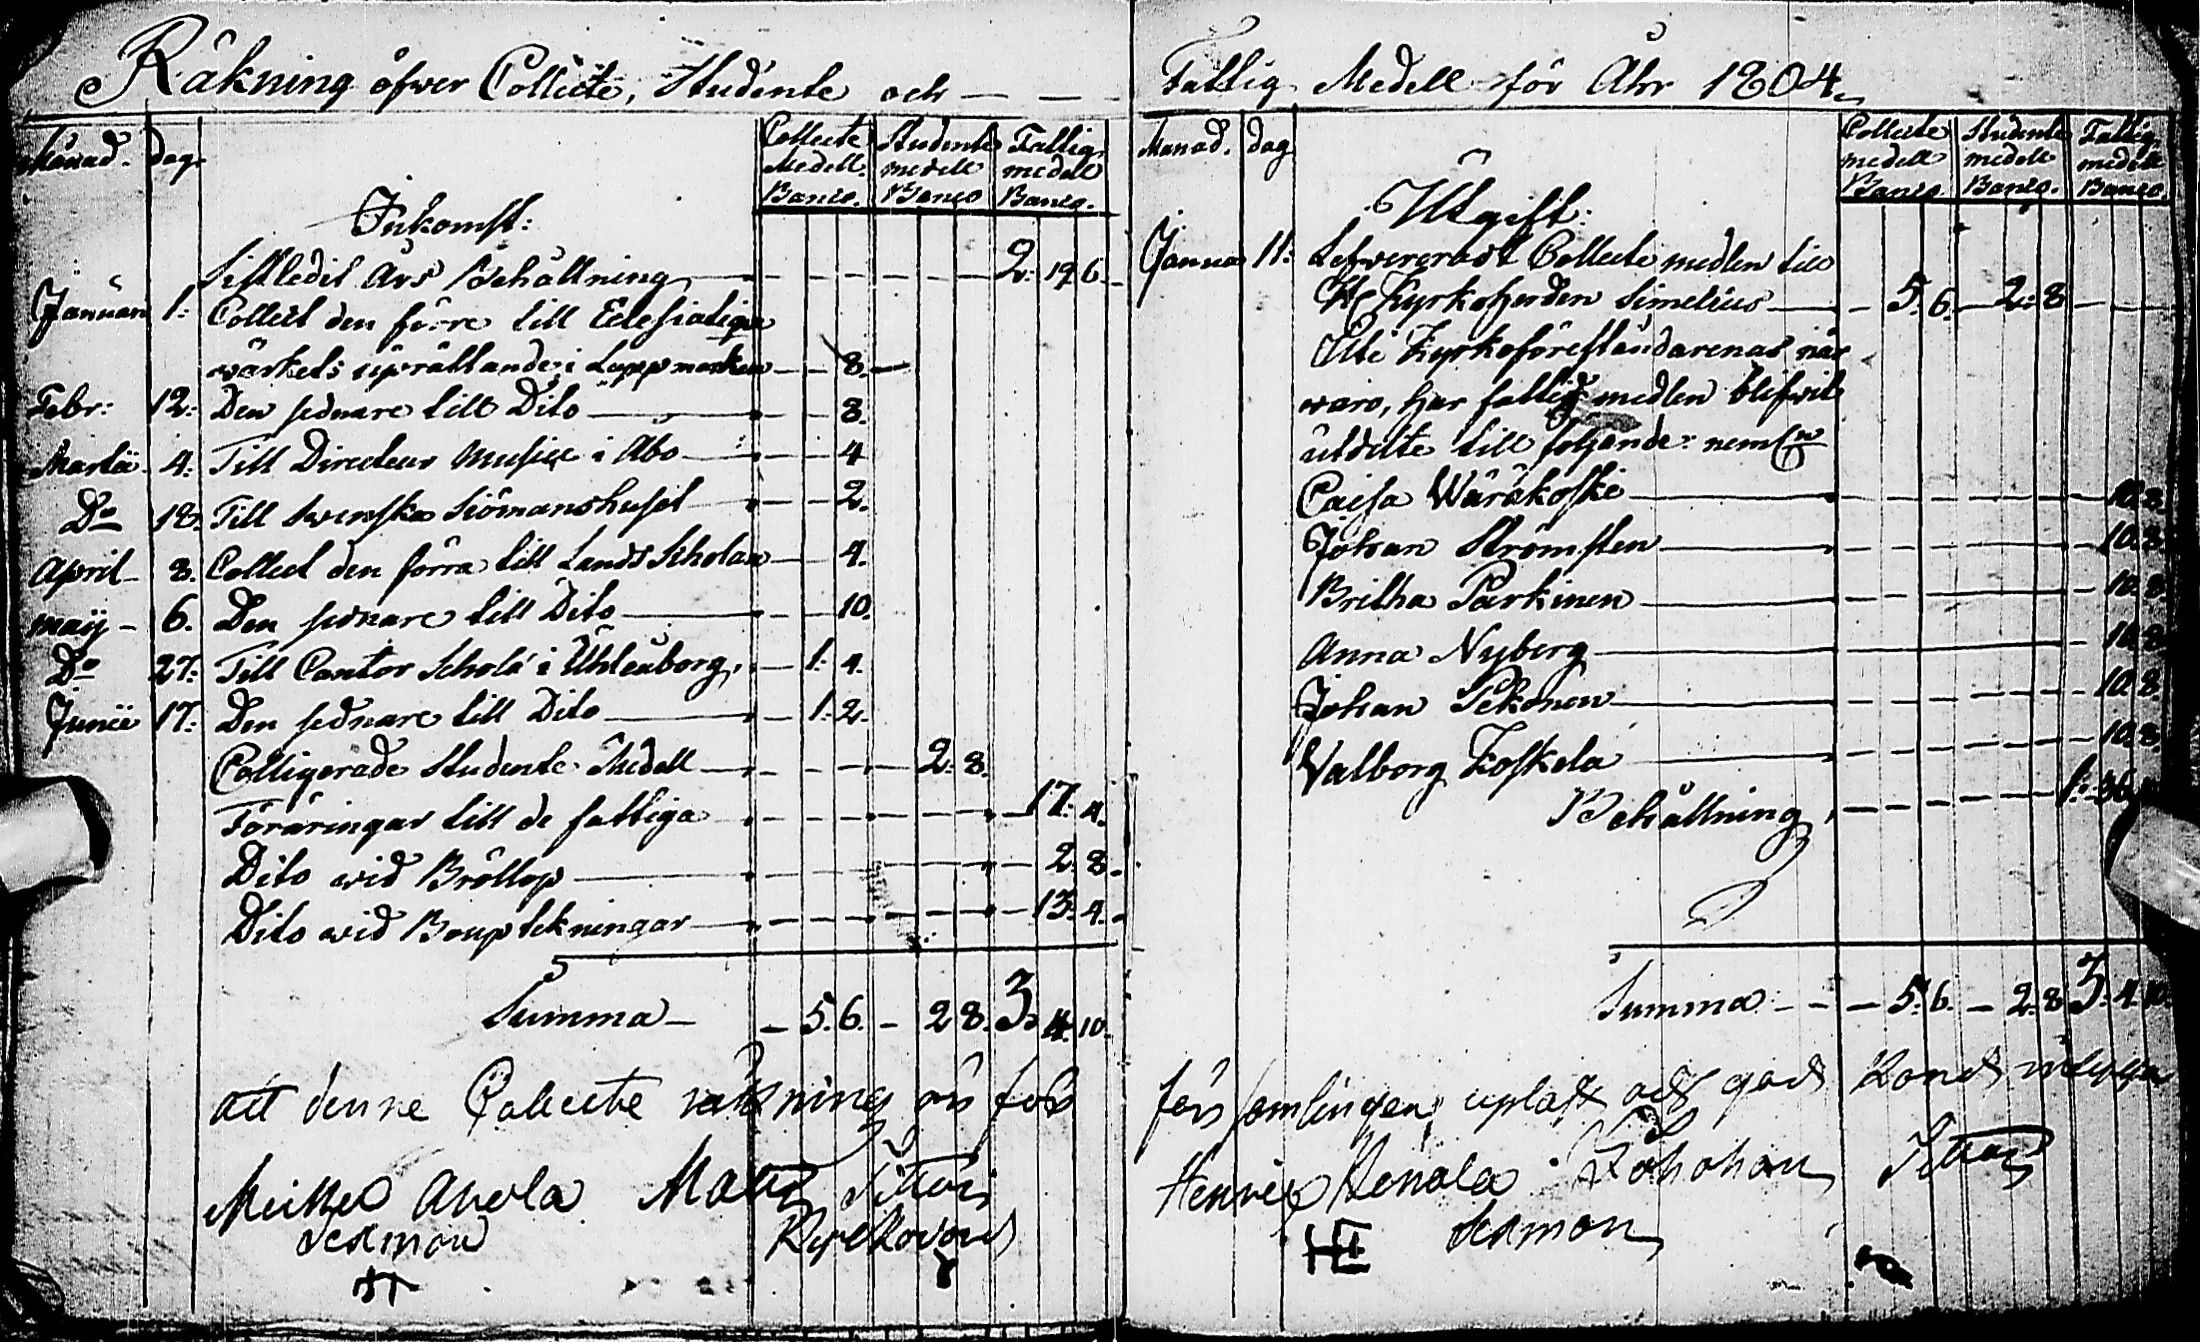 Räkning öfver Collecte, Studente och — —
Månad. Dag.
Collecte Medell. Banco.
Studente medell Banco
Fattig medell Banco.
Inkomst:
Sistledit Års Behållning — 2. 19. 6.
Januari 1. Collect den förre till Eclesiatiqve
wärkets uprättande i Lappmarken — 8.
Febr: 12. Den sednare till Dito — 8.
Martii 4. Till Directeur Musicæ i Åbo — 4
Do 18. Till Swenska Siömanshuset — 2.
April 8. Collect den förra till Lands Scholan — 4.
Maij 6. Den sednare till Dito — 10.
Do 27. Till Cantor Schola i Uhleåborg. — 1. 4.
Junii 17. Den sednare till Dito — 1. 2.
Colligerade Studente Medell — 2. 8.
Föräringar till de fattiga — 17. 4.
Dito wid Bröllop — 2. 8.
Dito wid Bouptekningar — 13. 4.
Summa — 5. 6. — 2 8. 3. 4. 10.
att denne Collecte räkning är för
Michel Matts
sexman Kyrkovärd
Fattig Medell för Åhr 1804.
Månad. dag
Collecte medell Banco.
Studente medell Banco.
Fattig medell Banco.
Utgift:
Januar 11. Lefwereradt Collecte medlen till
H Kyrkoherden Simelius — 5. 6. — 2. 8
Uti Kyrkoföreståndarenas när
waro, har fattig medlen blifwit
utdelte till följande: neml
Caisa Wäräkoski — 10. 8.
Johan Strömsten — 10. 8.
Britha Parkinen — 10. 8.
Anna Nyberg — 10. 8.
Johan Pekonen — 10. 8.
Valborg Koskela — 10. 8.
Behållning — 1. 36.
Summa — 5. 6. — 2. 8 3. 4. 10
församlingen upläst och god
Henric
sexman
HE